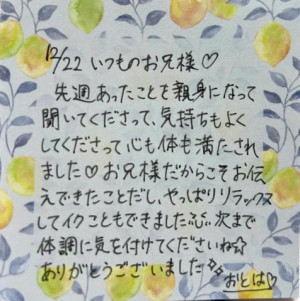 12/22 いつものお兄様♡
先週あったことを親身になって
聞いてくださって、気持ちもよく
してくださって心も体も満たされ
ました♡お兄様だからこそお伝
えできたことだし、やっぱりリラックス
してイクこともできました 次まで
体調に気を付けてくださいね☆
ありがとうございました
おとは♡